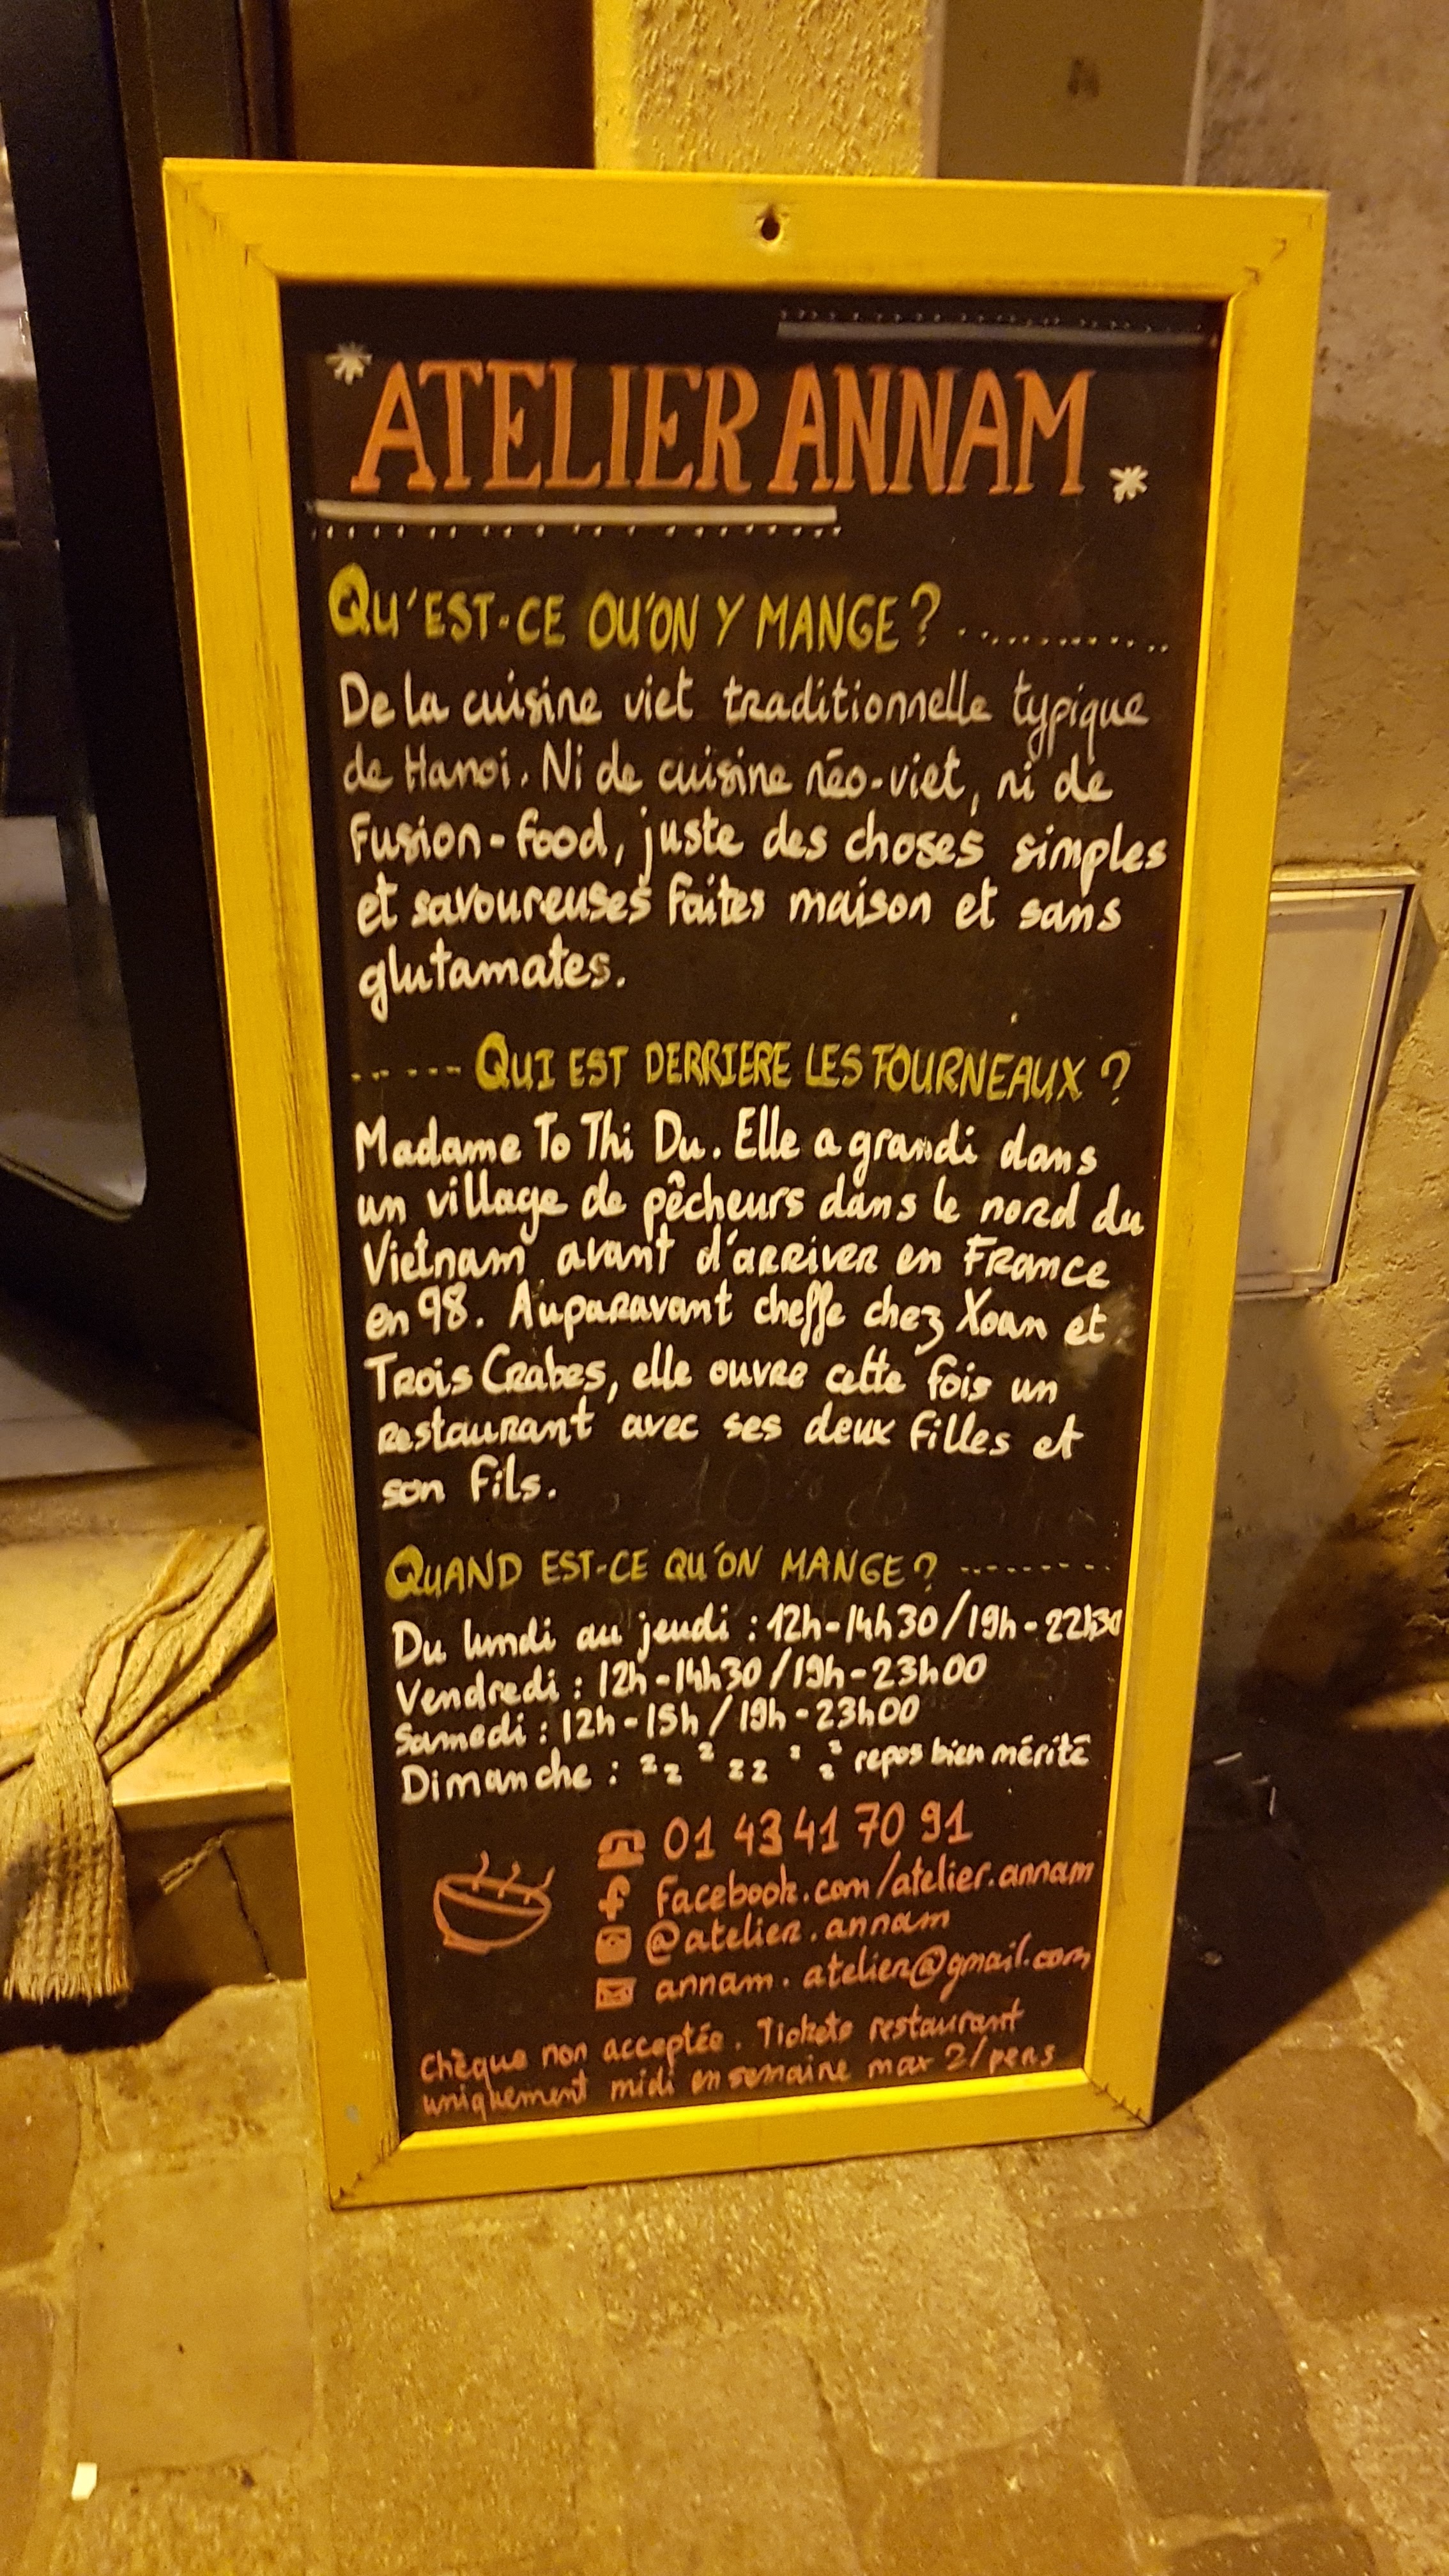 ATELIER ANNAM
QU'EST-CE QU'ON Y MANGE ? ............
De la cuisine viet traditionnelle typique
de Hanoi. Ni de cuisine néo-viet, ni de
Fusion-food, juste des choses simples
et savoureuses faites maison et sans
glutamates.
------ QUI EST DERRIERE LES FOURNEAUX ?
Madame To Thi Du. Elle a grandi dans
un village de pêcheurs dans le nord du
Vietnam avant d'arriver en France
en 98. Auparavant cheffe chez Xoan et
Trois Crabes, elle ouvre cette fois un
restaurant avec ses deux filles et
son fils.
QUAND EST-CE QU'ON MANGE ? ---------
Du lundi au jeudi : 12h-14h30/19h-22h30
Vendredi : 12h-14h30/19h-23h00
Samedi : 12h-15h/19h-23h00
Dimanche : zz z zz z z z repos bien mérité
01 43 41 70 91
facebook.com/atelier.annam
@atelier.annam
annam.atelier@gmail.com
Chèque non acceptée. Tickets restaurant
uniquement midi en semaine max 2/pers